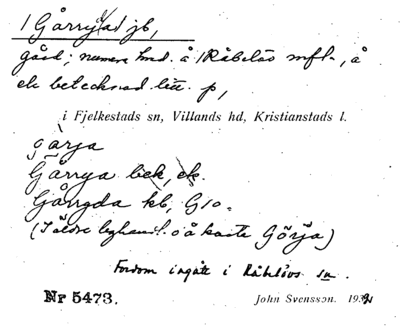 1 Gårrystad jb,
gård; numera hmd. å 1 Råbelöv mfl., å
ek betecknad litt. p,
i Fjelkestads sn, Villands hd, Kristianstads l.
gårja
Gårrya bek, ek.
Gårrgda kb, G10.
(I äldre leghand. o å karta Görja)
Fordom ingått i Råbelövs sn.
Nr 5473.
John Svensson. 1932